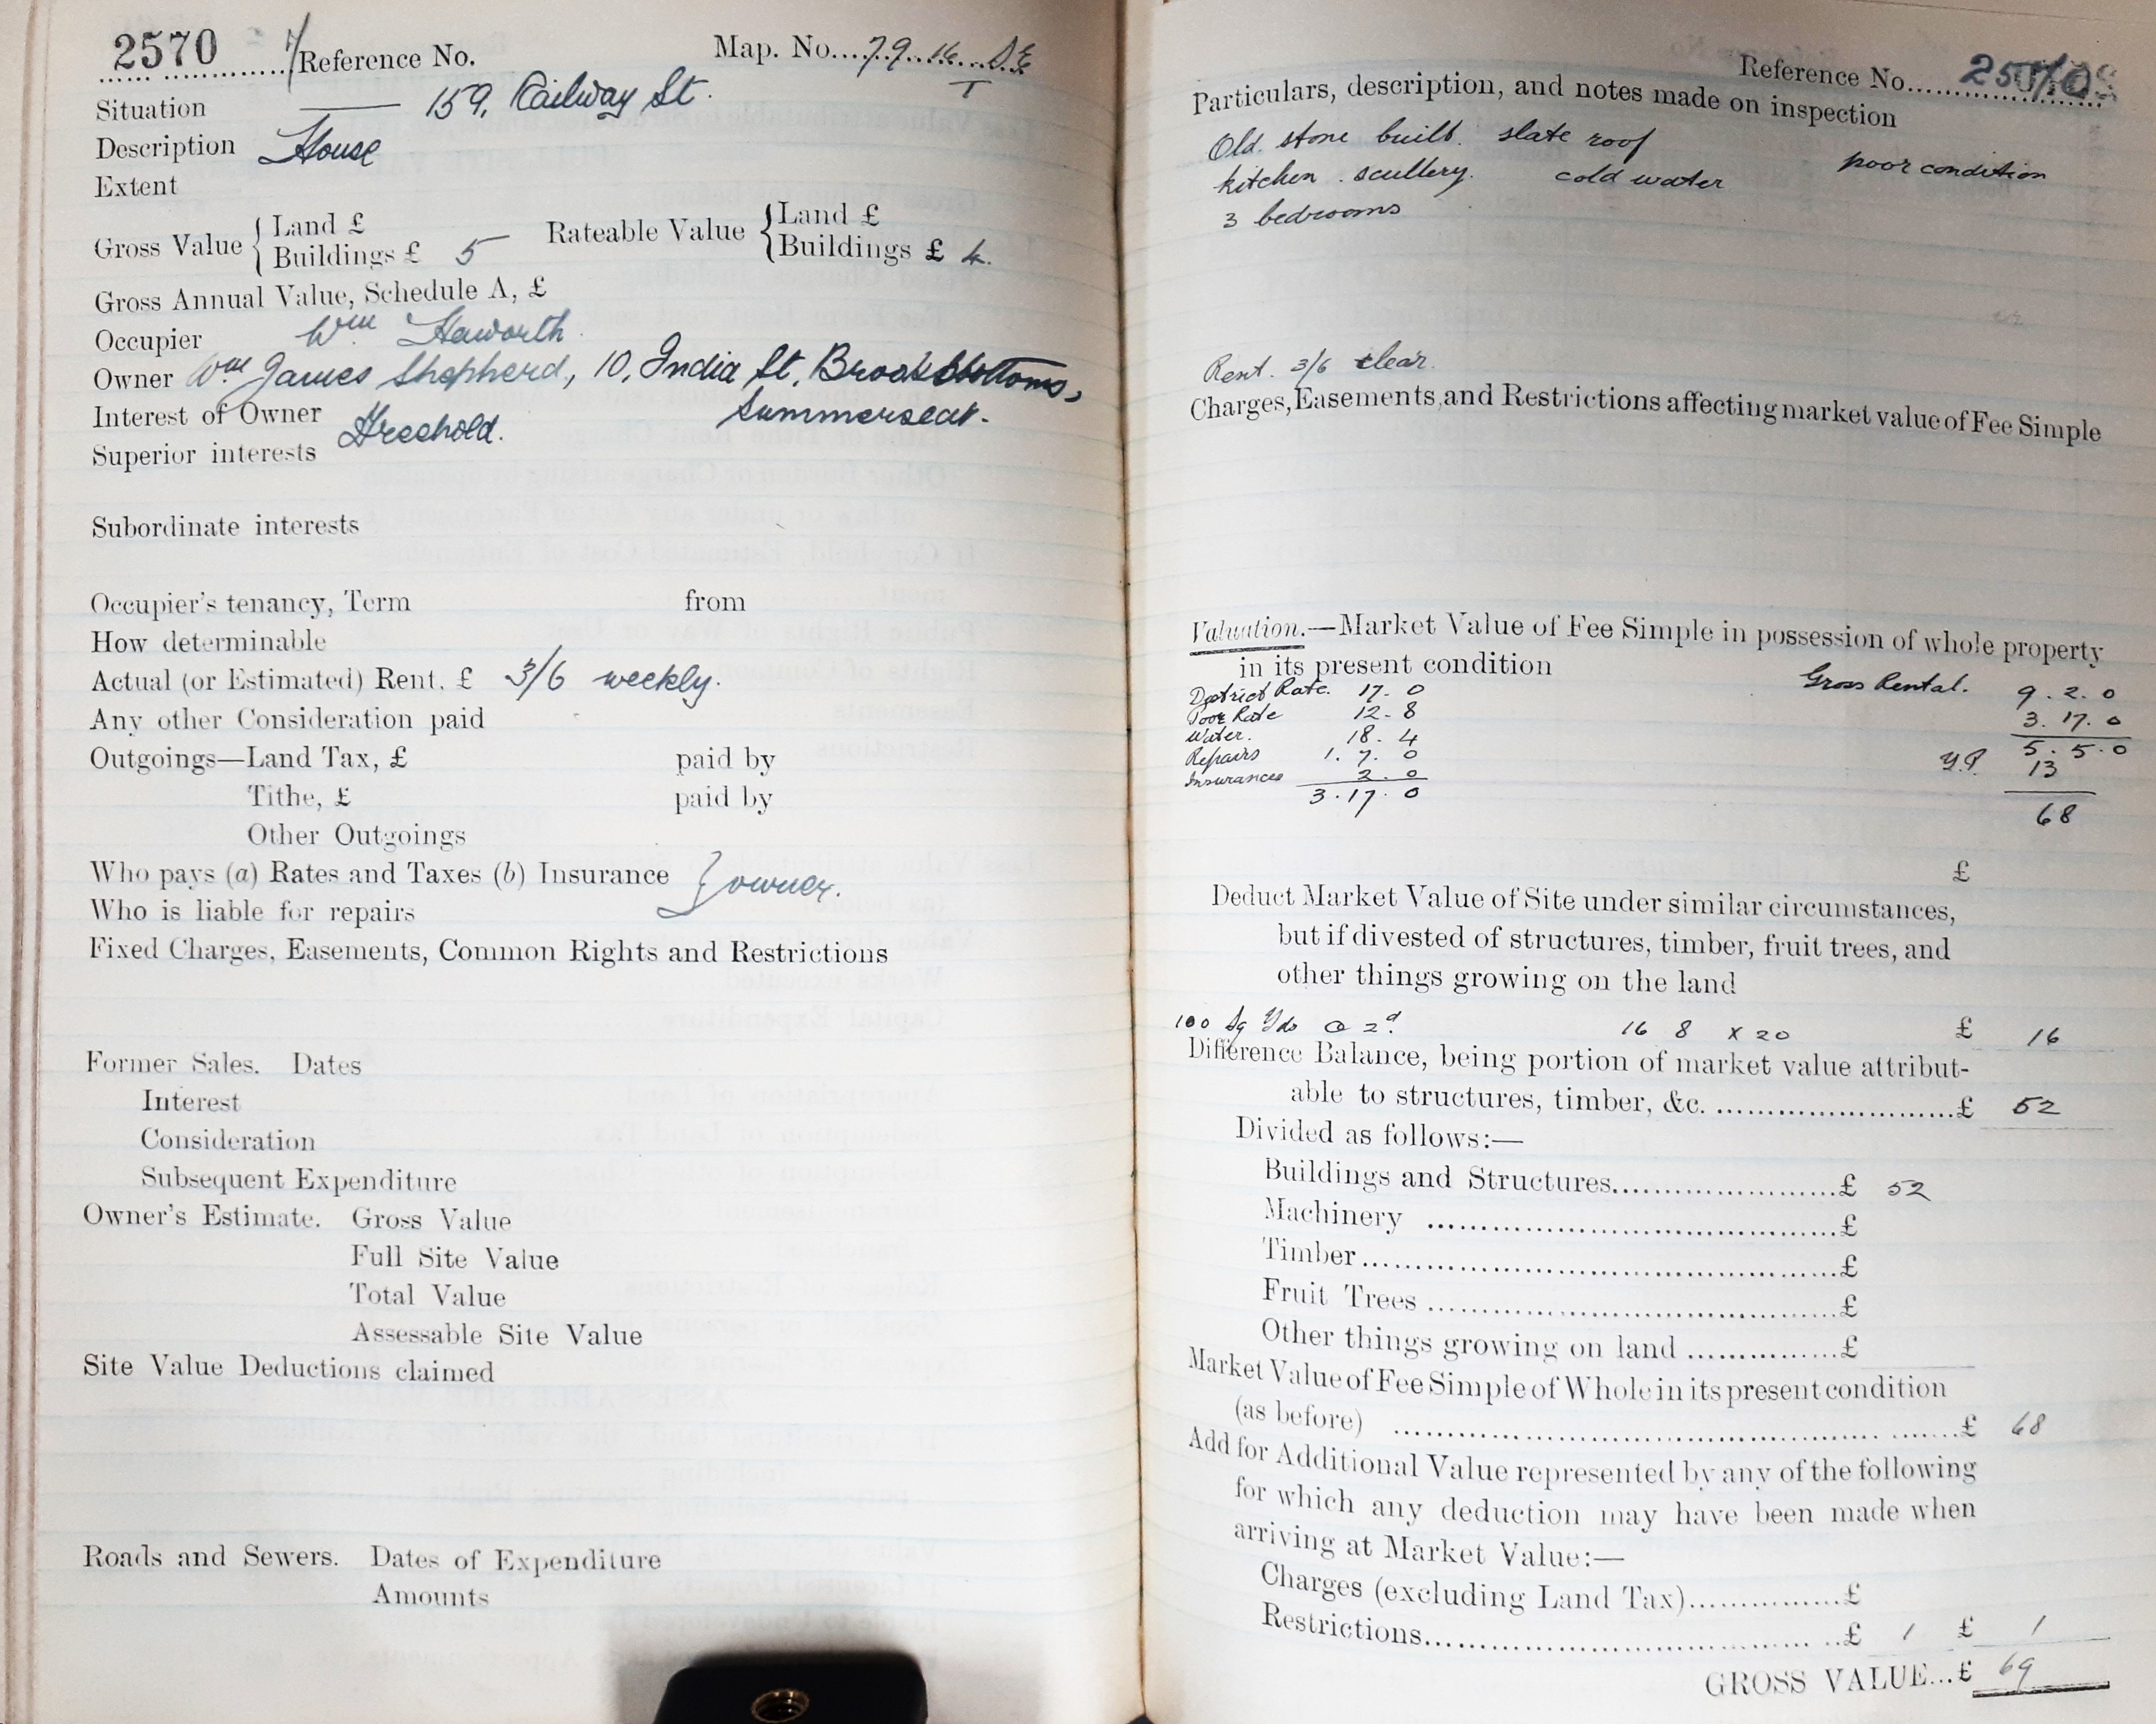 2570 Reference No. Map. No. 79. 16. S.E
T
Situation 159, Railway St.
Description House
Extent
Gross Value { Land £
Buildings £ 5
Rateable Value { Land £
Buildings £ 4.
Gross Annual Value, Schedule A, £
Occupier Wm Haworth
Owner Wm James Shepherd, 10, India St, Brooksbottoms,
Summerseat.
Interest of Owner Freehold.
Superior interests
Subordinate interests
Occupier's tenancy, Term from
How determinable
Actual (or Estimated) Rent, £ 3/6 weekly.
Any other Consideration paid
Outgoings—Land Tax, £ paid by
Tithe, £ paid by
Other Outgoings
Who pays (a) Rates and Taxes (b) Insurance } owner.
Who is liable for repairs
Fixed Charges, Easements, Common Rights and Restrictions
Former Sales. Dates
Interest
Consideration
Subsequent Expenditure
Owner's Estimate. Gross Value
Full Site Value
Total Value
Assessable Site Value
Site Value Deductions claimed
Roads and Sewers. Dates of Expenditure
Amounts
Reference No. 2570
Particulars, description, and notes made on inspection
Old. stone built. slate roof
poor condition
kitchen . scullery. cold water
3 bedrooms
Rent. 3/6 clear.
Charges, Easements, and Restrictions affecting market value of Fee Simple
Valuation.—Market Value of Fee Simple in possession of whole property
in its present condition
District Rate. 17. 0
Poor Rate 12. 8
Water. 18. 4
Repairs 1. 7. 0
Insurances 2. 0
3. 17. 0
Gross Rental. 9. 2. 0
3. 17. 0
5. 5. 0
Y.P. 13
68
£
Deduct Market Value of Site under similar circumstances,
but if divested of structures, timber, fruit trees, and
other things growing on the land
100 Sq Yds @ 2d. 16 8 x 20 £ 16
Difference Balance, being portion of market value attribut-
able to structures, timber, &c. £ 52
Divided as follows:—
Buildings and Structures £ 52
Machinery £
Timber £
Fruit Trees £
Other things growing on land £
Market Value of Fee Simple of Whole in its present condition
(as before) £ 68
Add for Additional Value represented by any of the following
for which any deduction may have been made when
arriving at Market Value:—
Charges (excluding Land Tax) £
Restrictions £ 1 £ 1
GROSS VALUE... £ 69